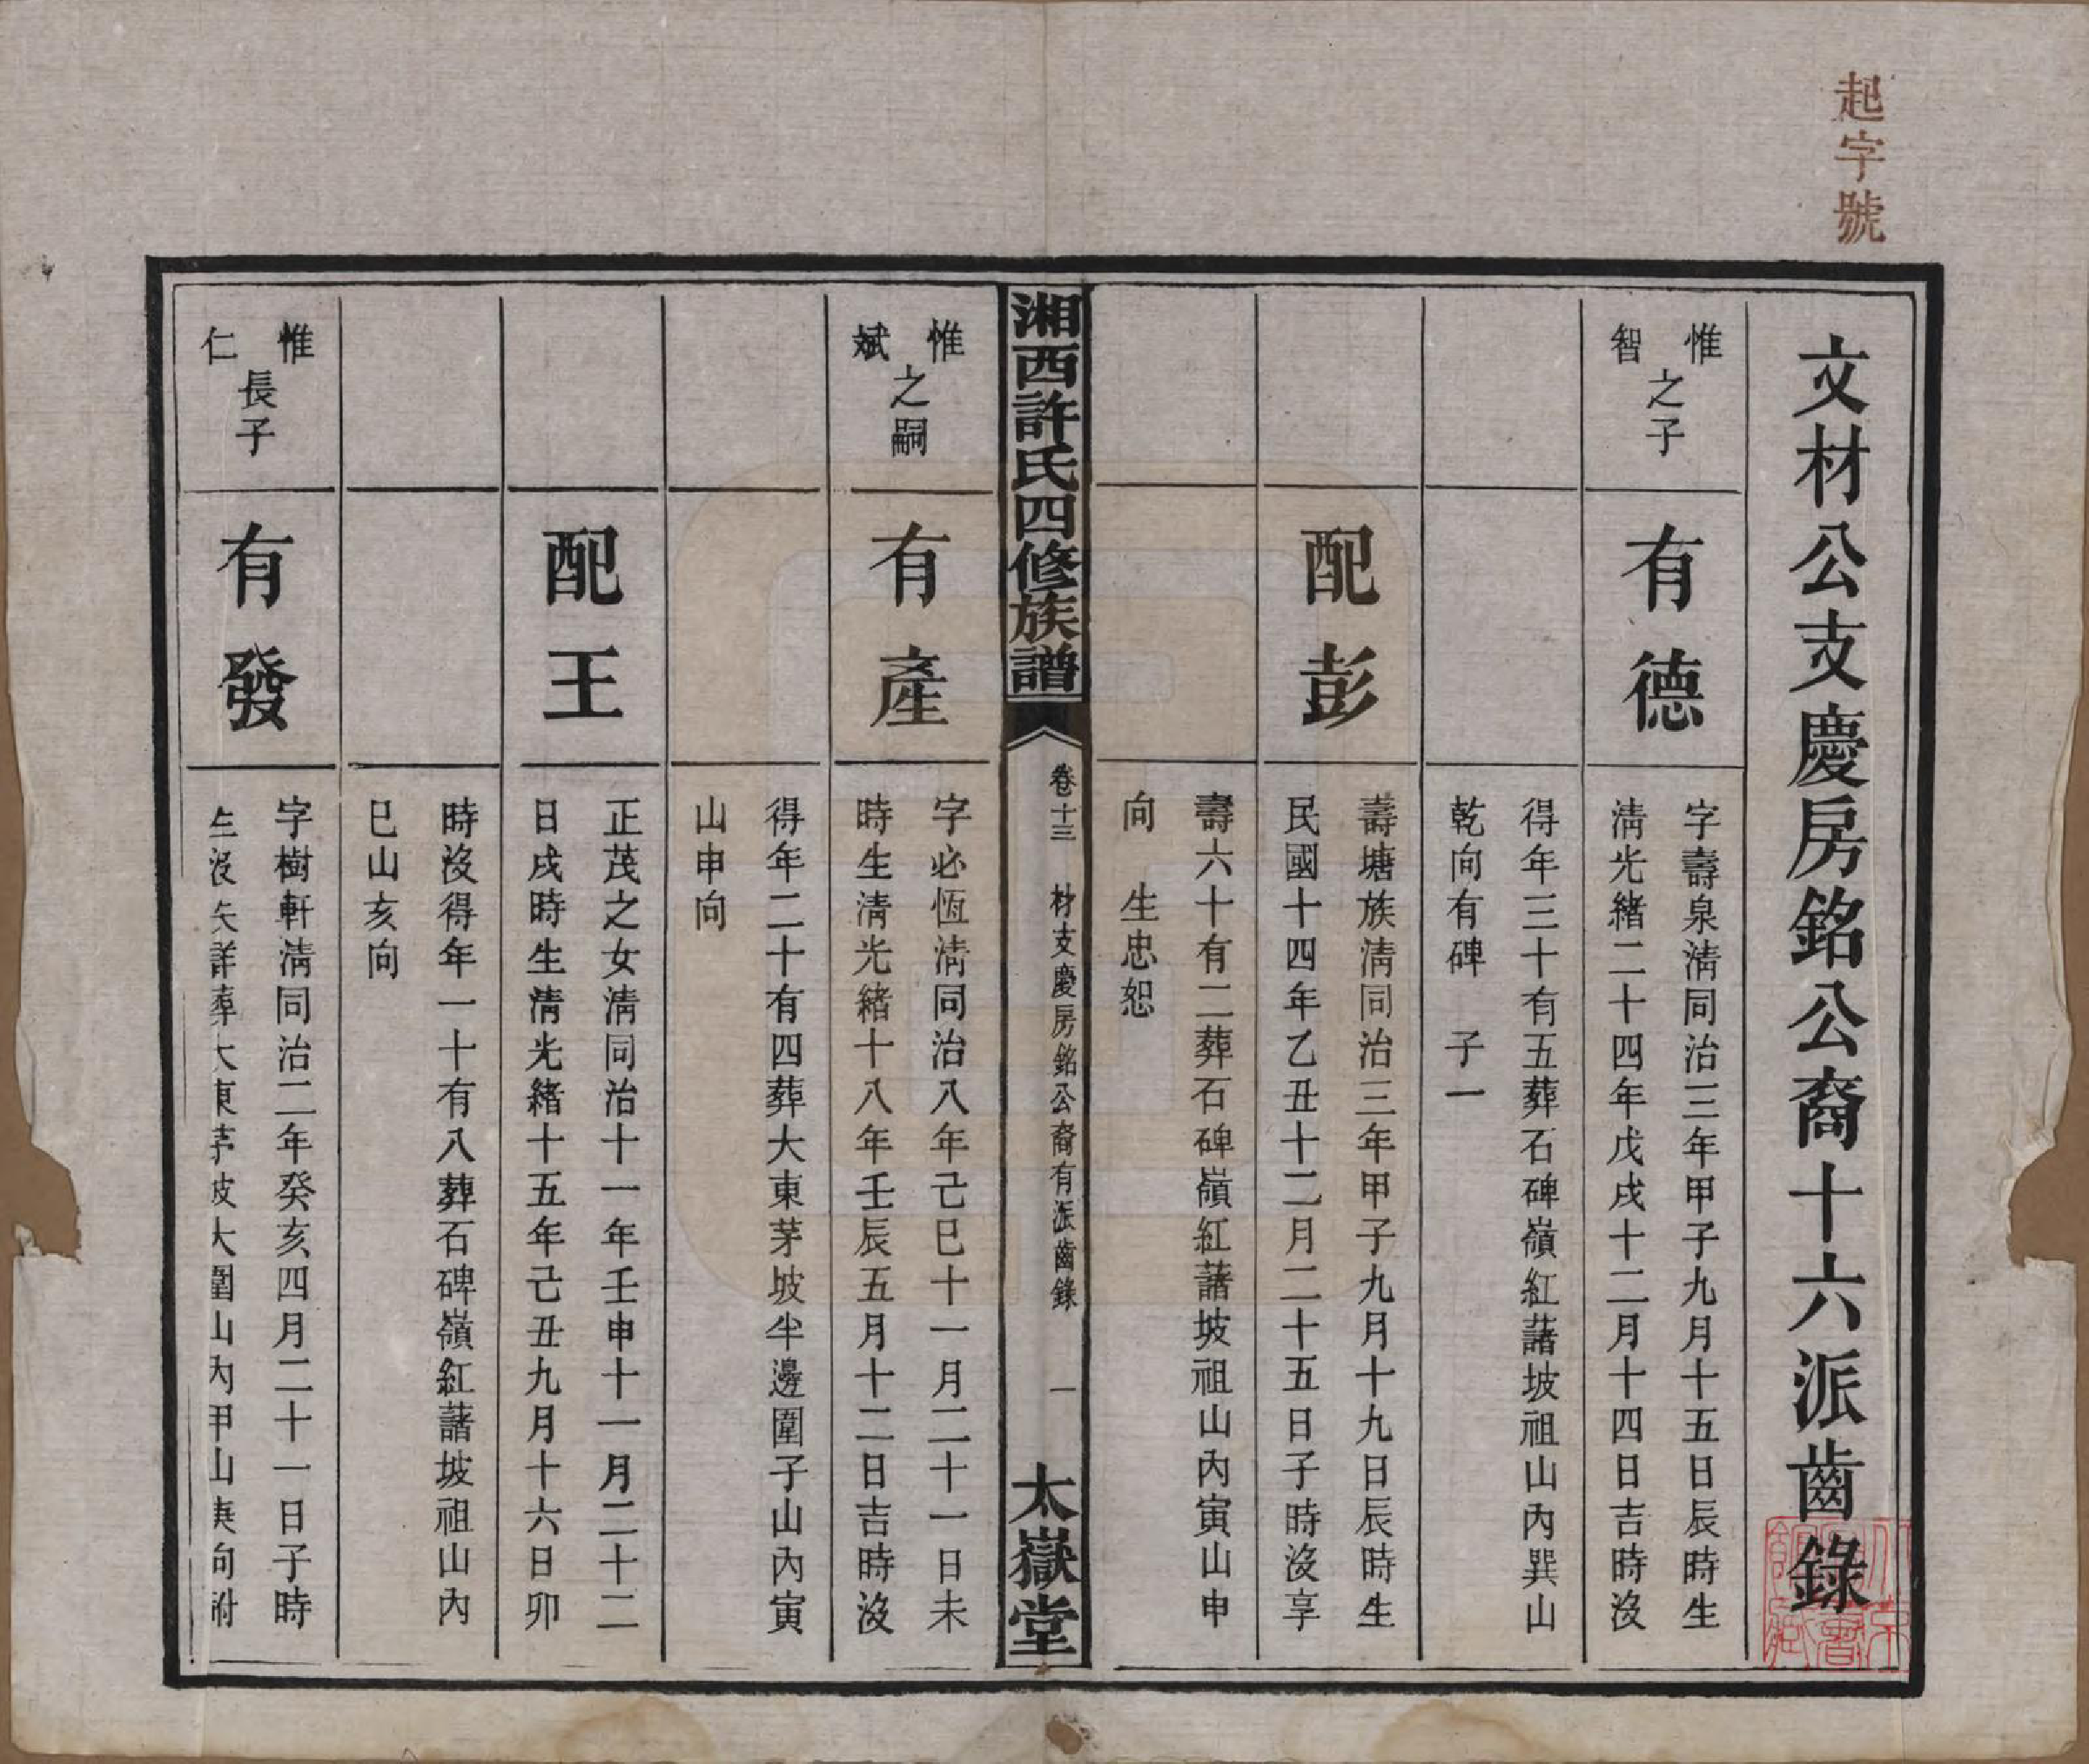 起字號
文材公支慶房銘公裔十六派齒錄
惟智之子
有德
字壽泉淸同治三年甲子九月十五日辰時生
淸光緒二十四年戊戌十二月十四日吉時沒
得年三十有五葬石碑嶺紅藷坡祖山內巽山
乾向有碑 子一
配彭
壽塘族淸同治三年甲子九月十九日辰時生
民國十四年乙丑十二月二十五日子時沒享
壽六十有二葬石碑嶺紅藷坡祖山內寅山申
向 生忠恕
湘西許氏四修族譜
卷十三 材支慶房銘公裔有派齒錄 一
太嶽堂
惟斌之嗣
有產
字必恆淸同治八年己巳十一月二十一日未
時生淸光緒十八年壬辰五月十二日吉時沒
得年二十有四葬大東茅坡半邊圍子山內寅
山申向
配王
正茂之女淸同治十一年壬申十一月二十二
日戌時生淸光緒十五年己丑九月十六日卯
時沒得年一十有八葬石碑嶺紅藷坡祖山內
巳山亥向
惟仁長子
有發
字樹軒淸同治二年癸亥四月二十一日子時
生沒失詳葬大東茅坡大圍山內甲山庚向附